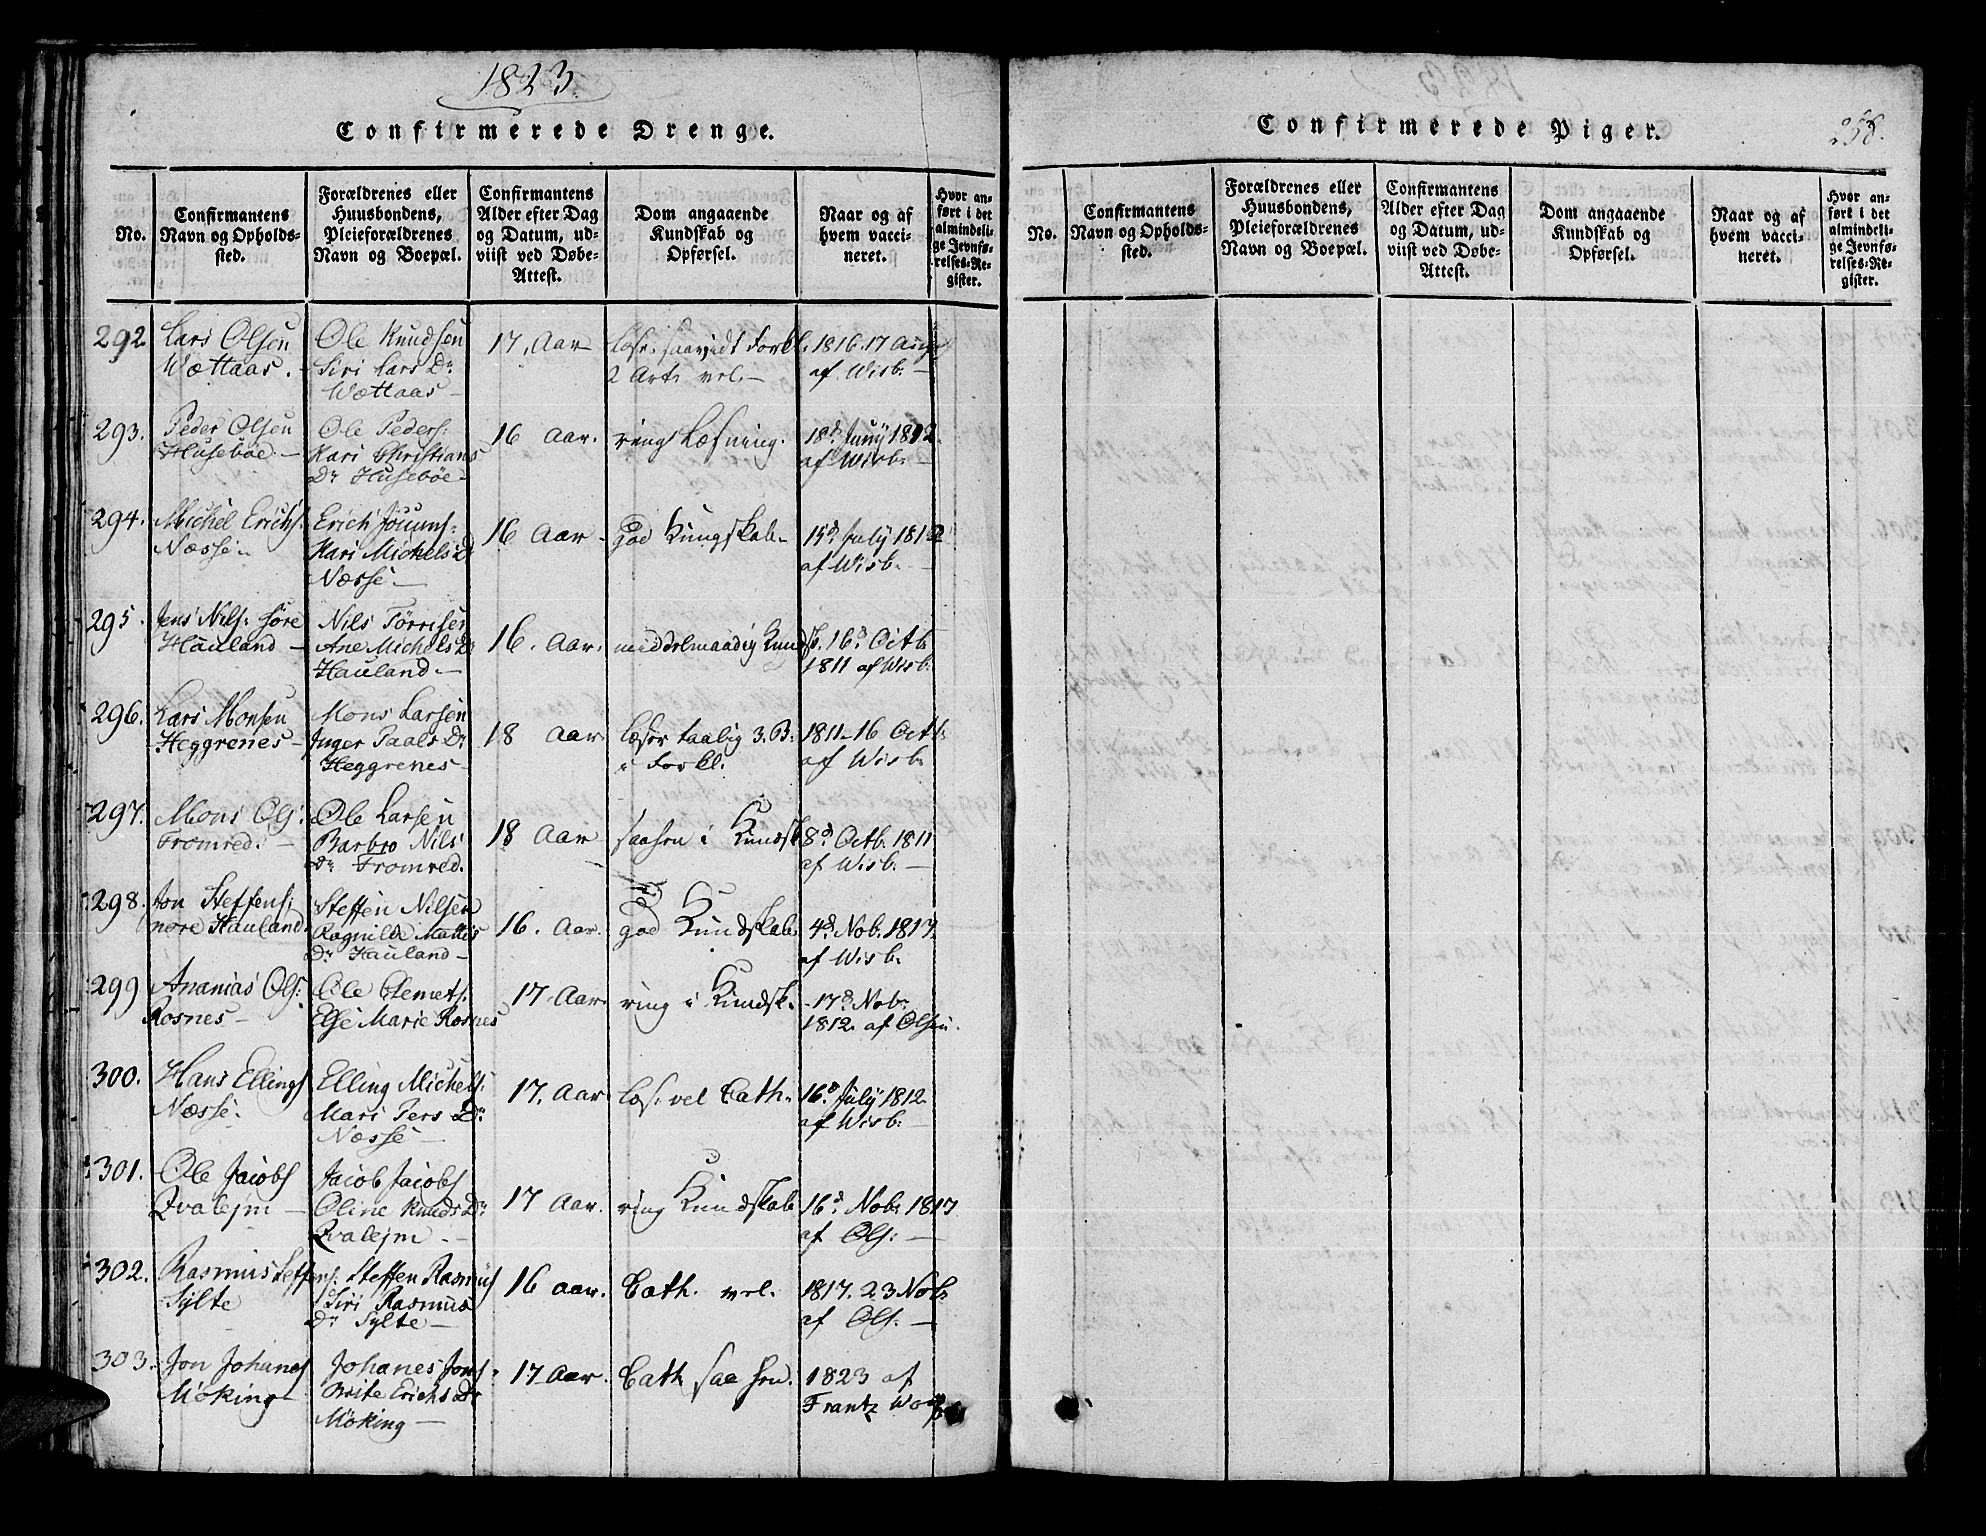 1823.
Confirmerede Drenge.
No.
Confirmantens Navn og Opholdssted.
Forældrenes eller Huusbondens, Pleieforældrenes Navn og Boepæl.
Confirmantens Alder efter Dag og Datum, udviist ved Døbe-Attest.
Dom angaaende Kundskab og Opførsel.
Naar og af hvem vaccineret.
Hvor anført i det almindelige Jevnførelses-Register.
292 Lars Olsen Ole Knudsen 17. Aar Læs. saavidt Forkl. 1816. 17 Aug
Wættaas. Siri Lars Dr 2 Art. vel. af Wisb.
Wættaas
293. Peder Olsen Ole Peders: 16 Aar. ring Læsning. 18d Juny 1812.
Husebøe Kari Christians af Wisb.
Dr Husebøe
294. Michel Erichs. Erich 16 Aar god Kungskab 15d July 1812
Næsse Kari Michels D af Wisb.
Næsse
295. Jens Nils: søre Nils Tørrisen 16. Aar. middelmaadig Kundsk. 16d Octb
Hauland Ane Michels Dr 1811 af Wisb.
Hauland
296. Lars Monsen Mons Larsen 18 Aar læser taalig 3. B: 1811 16 Octb:
Heggrenes Inger Paals Dr i Forkl. af Wisb.
Heggrenes
297. Mons Ols: Ole Larsen 18 Aar saasen i Kundsk 8d Octb. 1811
Fromred. Barbro Nils af Wisb.
Dr Fromred.
298. Jon Steffens: Steffen Nilsen 16. Aar. god Kundskab 4d Nob. 1817.
nore Hauland. Ragnilde Mattis af Wisb.
Dr Hauland
299 Ananias Ols: Ole Clemets. 17 Aar. ring i Kundsk. 17d Nob.
Rosnes Else Marie Rosnes 1812. af Olsen.
300. Hans Ellings Elling Michels: 17. Aar læs. vel Cath. 16d July 1812
Næsse. Mari Pers Dr af Wisb.
Næsse
301. Ole Jacobs Jacob Jacobs 17 Aar. ring Kundskab 16d Nob. 1817
Qvalejm Oline Knuds Dr af Ols:
Qvalejm
302. Rasmus Steffens: Steffen Rasmus 16 Aar. Cath. vel. 1817. 23 Nob
Sylte Siri Rasmus af Ols:
Dr Sylte
303. Jon Johanes Johanes Jons 17 Aar. Cath saa sen. 1823 af
Møking Brite Erichs Dr Frantz
Møking
Confirmerede Piger.
258.
No.
Confirmantens Navn og Opholdssted.
Forældrenes eller Huusbondens, Pleieforældrenes Navn og Boepæl.
Confirmantens Alder efter Dag og Datum, udviist ved Døbe-Attest.
Dom angaaende Kundskab og Opførsel.
Naar og af hvem vaccineret.
Hvor anført i det almindelige Jevnførelses-Register.